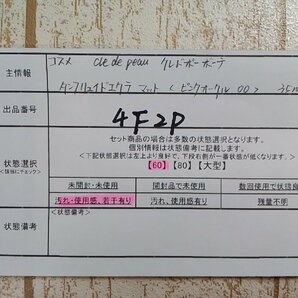 主情報
コスメ cle de peau クレドポーボーテ
タンフリュイドエクラ マット <ピンクオークル 00>
出品番号
4F2P
状態選択
<該当にチェック>
セット商品の場合は多数の状態選択。
個別情報は状態備考に記載します。
<下記状態選択は左上より良好で、下段右側が一番状態が低くなります>
【60】【80】【大型】
未開封・未使用
開封品で未使用
数回使用で状態良
汚れ・使用感、若干有り
汚れ、使用感有り
残量不明
状態備考
<状態備考>